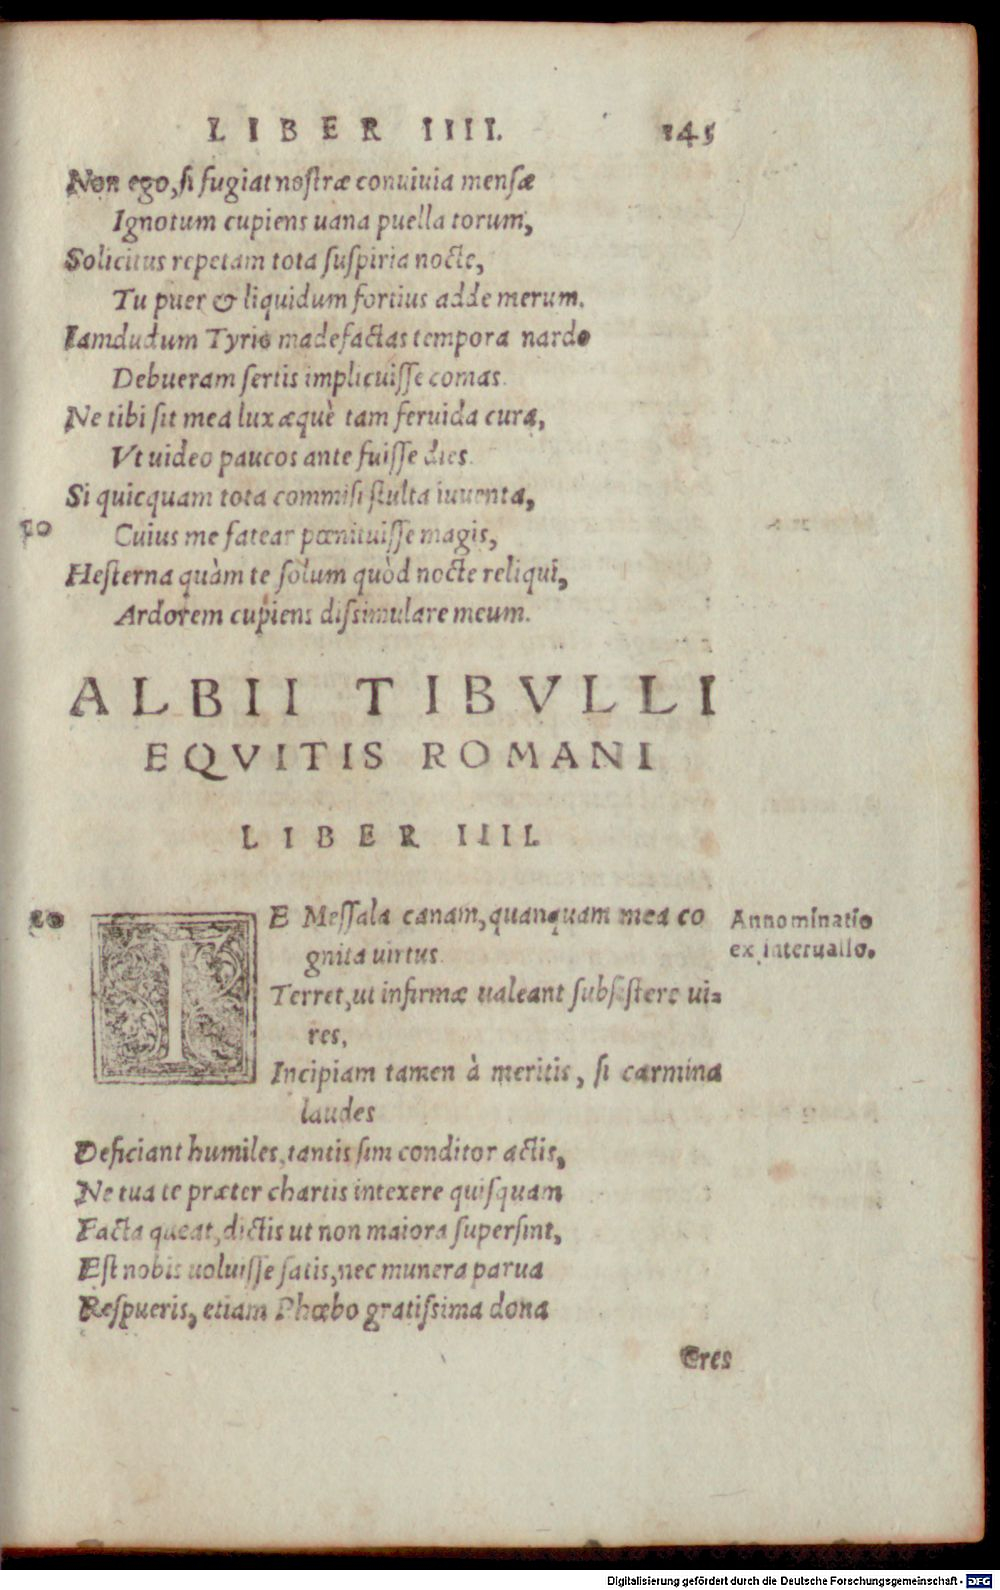 LIBER IIII. 145
Non ego, si fugiat nostræ conuiuia mensæ
Ignotum cupiens uana puella torum,
Solicitus repetam tota suspiria nocte,
Tu puer & liquidum fortius adde merum.
Iamdudum Tyrio madefactas tempora nardo
Debueram sertis implicuisse comas.
Ne tibi sit mea lux æquè tam feruida cura,
Vt uideo paucos ante fuisse dies.
Si quicquam tota commisi stulta iuuenta,
10 Cuius me fatear pœnituisse magis,
Hesterna quàm te solum quòd nocte reliqui,
Ardorem cupiens dissimulare meum.
ALBII TIBVLLI
EQVITIS ROMANI
LIBER IIII.
20 TE Messala canam, quanquam mea co Annominatio
gnita uirtus ex interuallo.
Terret, ut infirmæ ualeant subsistere ui=
res,
Incipiam tamen à meritis, si carmina
laudes
Deficiant humiles, tantis sim conditor actis,
Ne tua te præter chartis intexere quisquam
Facta queat, dictis ut non maiora supersint,
Est nobis uoluisse satis, nec munera parua
Respueris, etiam Phœbo gratissima dona
Cres
Digitalisierung gefördert durch die Deutsche Forschungsgemeinschaft - DFG